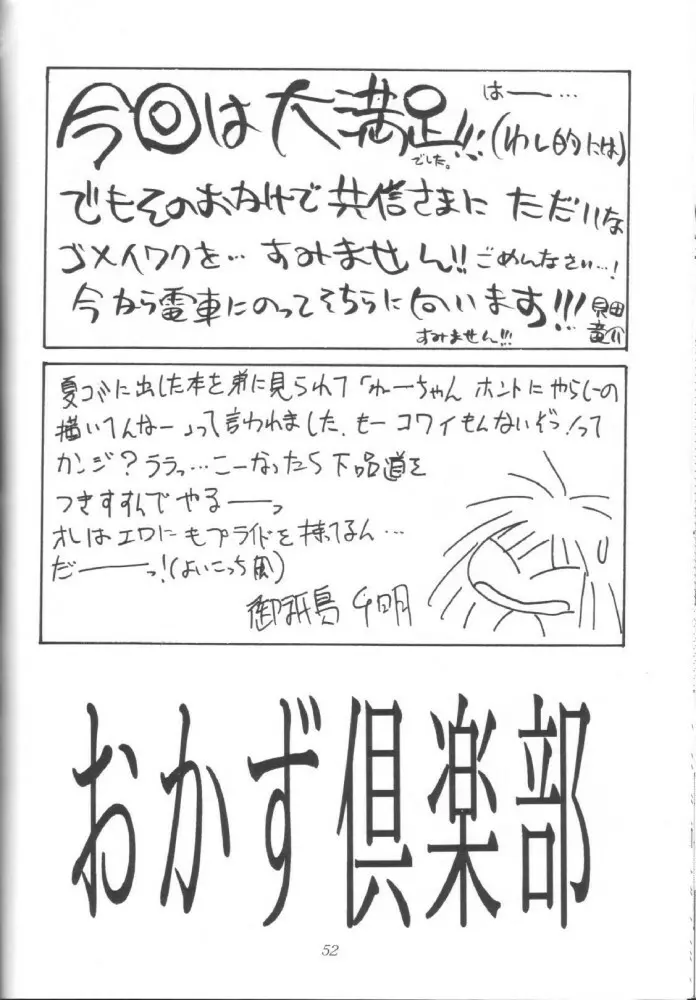 今回は大満足!!!でした。
はー…
(わし的には)
でもそのおかげで共信さまに ただいな
ゴメイワクを… すみません!! ごめんなさい…!
今から電車にのってそちらに向います!!!
すみません!!!
夏コミに出した本を弟に見られて「ねーちゃん ホントにやらしーの
描いてんなー」って言われました。もー コワイもんないぞっ!って
カンジ?ララっ…こーなったら下品道を
つきすすんでやるーっ
オレはエロにもプライドを持ってるん…
だーっ!(よいこっち風)
おかず倶楽部
52